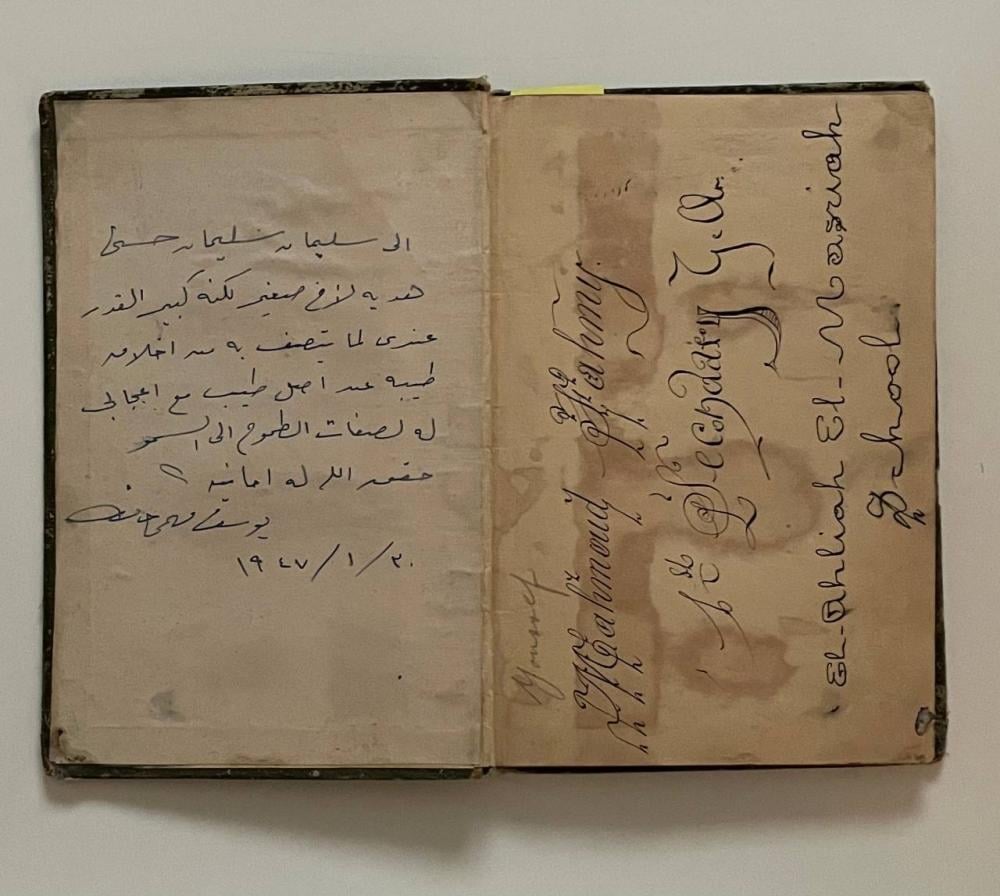 الى سليمان سليمان حسنى
هديه لأخ صغير لكنه كبير القدر
عندى لما يتصف به من اخلاق
طيبه عن اصل طيب مع اعجابى
له لصفات الطموح الى السمو
حقق الله له امانيه
يوسف فهمى
١٩٤٧/١/٣٠
Youssef
Mahmoud Fahmy.
1st Secondary Y.A.
El-Ahliah El-Masriah
School.